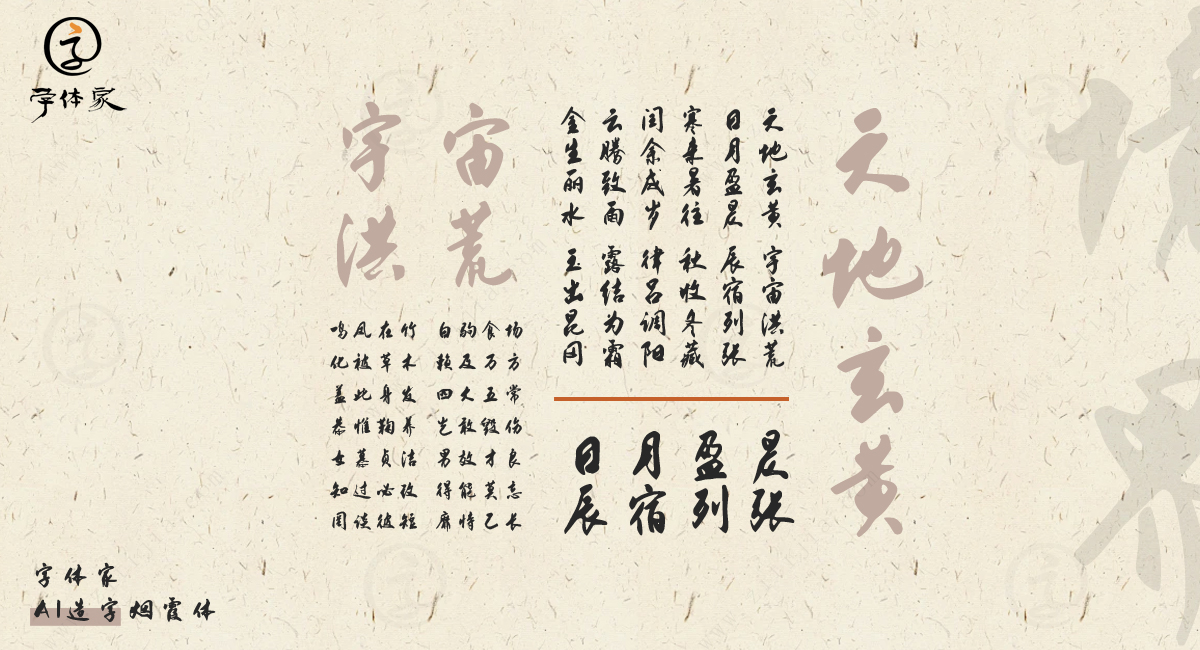 字
字体家
天地玄黄
天地玄黄 宇宙洪荒
日月盈昃 辰宿列张
寒来暑往 秋收冬藏
闰余成岁 律吕调阳
云腾致雨 露结为霜
金生丽水 玉出昆冈
日月盈昃
辰宿列张
宇宙
洪荒
场方常伤良忘长
食万五毁才莫己
驹及大敢效能恃
白赖四岂男得靡
竹木发养洁改短
在草身鞠贞必彼
凤被此惟慕过谈
鸣化盖恭女知罔
字体家
AI造字烟霞体